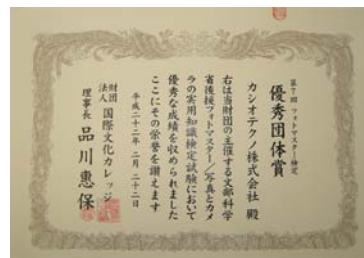 第7回 フォトマスター検定
優秀団体賞
カシオテクノ株式会社 殿
右は当財団の主催する文部科学
省後援フォトマスター/写真とカメ
ラの実用知識検定試験において
優秀な成績を収められました
ここにその栄誉を讃えます
平成二十二年 二月 二十二日
財団法人 国際文化カレッジ
理事長 品川惠保